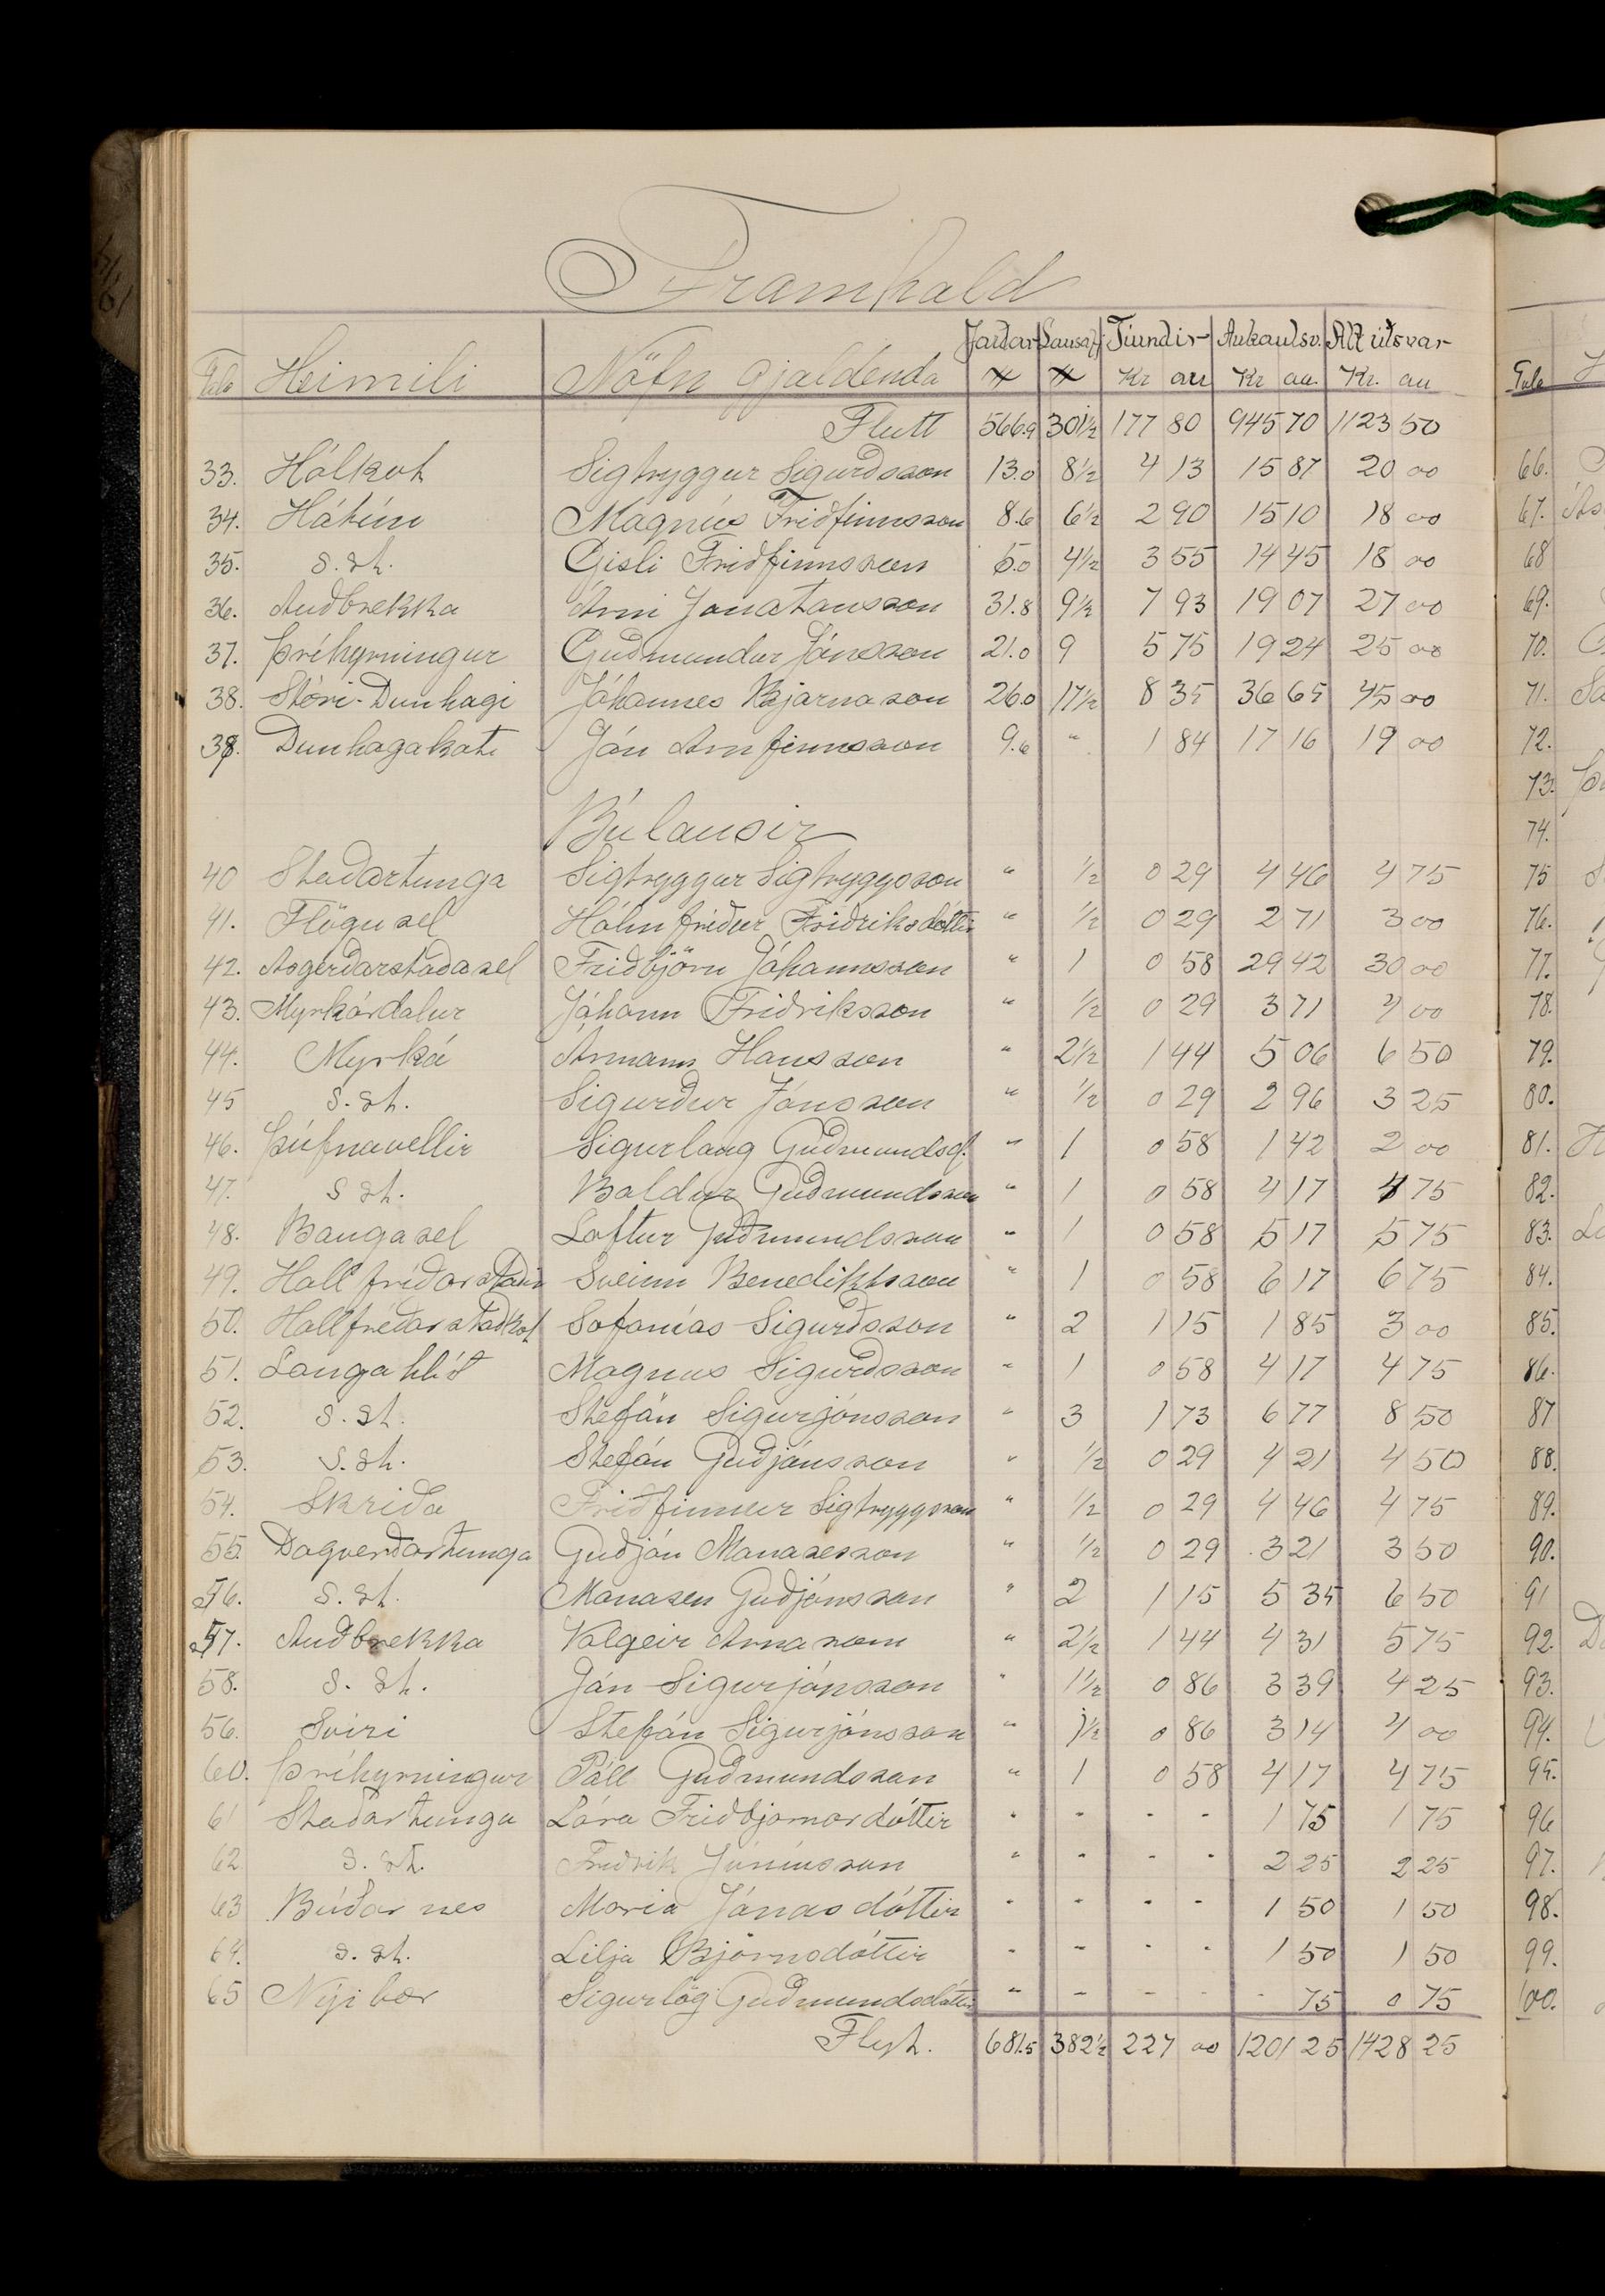 Framhald
Tala Heimili Nöfn gjaldenda Jarðar Lausafj Tíundir Aukaútsv. Allt útsvar
Kr au Kr au. Kr. au
Flutt 566.9 301½ 177 80 945 70 1123 50
33. Hólkot Sigtryggur Sigurðsson 13.0 8½ 4 13 15 87 20 00
34. Hátún Magnús Friðfinnsson 8.6 6½ 2 90 15 10 18 00
35. s. st. Gísli Friðfinnsson 5.0 4½ 3 55 14 45 18 00
36. Auðbrekka Árni Jónatansson 31.8 9½ 7 93 19 07 27 00
37. Þríhyrningur Guðmundur Jónsson 21.0 9 5 75 19 24 25 00
38. Stóri-Dunhagi Jóhannes Bjarnason 26.0 17½ 8 35 36 65 45 00
39. Dunhagakoti Jón Arnfinnsson 9.6 " 1 84 17 16 19 00
Búlausir
40 Staðartunga Sigtryggur Sigtryggsson " ½ 0 29 4 46 4 75
41. Flögusel Hólmfríður Friðriksdóttir " ½ 0 29 2 71 3 00
42. Ásgerðarstaðasel Friðbjörn Jóhannsson " 1 0 58 29 42 30 00
43. Myrkárdalur Jóhann Friðriksson " ½ 0 29 3 71 4 00
44. Myrká Ármann Hansson " 2½ 1 44 5 06 6 50
45 s. st. Sigurður Jónsson " ½ 0 29 2 96 3 25
46. Þúfnavellir Sigurlaug Guðmundsd. " 1 0 58 1 42 2 00
47. s st. Baldur Guðmundsson " 1 0 58 4 17 4 75
48. Baugasel Loftur Guðmundsson " 1 0 58 5 17 5 75
49. Hallfríðarstaðir Sveinn Benediktsson " 1 0 58 6 17 6 75
50. Hallfríðarstaðkot Sofanías Sigurðsson " 2 1 15 1 85 3 00
51. Langahlíð Magnús Sigurðsson " 1 0 58 4 17 4 75
52. s. st. Stefán Sigurjónsson " 3 1 73 6 77 8 50
53. s. st. Stefán Guðjónsson " ½ 0 29 4 21 4 50
54. Skriða Friðfinnur Sigtryggsson " ½ 0 29 4 46 4 75
55. Dagverðartunga Guðjón Manasesson " ½ 0 29 3 21 3 50
56. s. st. Manases Guðjónsson " 2 1 15 5 35 6 50
57. Auðbrekka Valgeir Árnason " 2½ 1 44 4 31 5 75
58. s. st. Jón Sigurjónsson " 1½ 0 86 3 39 4 25
56. Svíri Stefán Sigurjónsson " 1½ 0 86 3 14 4 00
60. Þríhyrningur Páll Guðmundsson " 1 0 58 4 17 4 75
61 Staðartunga Lára Friðbjörnardóttir " - - - 1 75 1 75
62 s. st. Friðrik Júníusson " - - - 2 25 2 25
63 Búðarnes María Jónasdóttir - - - - 1 50 1 50
64. s. st. Lilja Björnsdóttir - - - - 1 50 1 50
65 Nýibær Sigurlög Guðmundsdóttir - - - - - 75 0 75
Flyt. 681.5 382½ 227 00 1201 25 1428 25
Tala
66.
67.
68
69.
70.
71.
72.
73.
74.
75
76.
77.
78.
79.
80.
81.
82.
83.
84.
85.
86.
87
88.
89.
90.
91
92.
93.
94.
95.
96
97.
98.
99.
100.